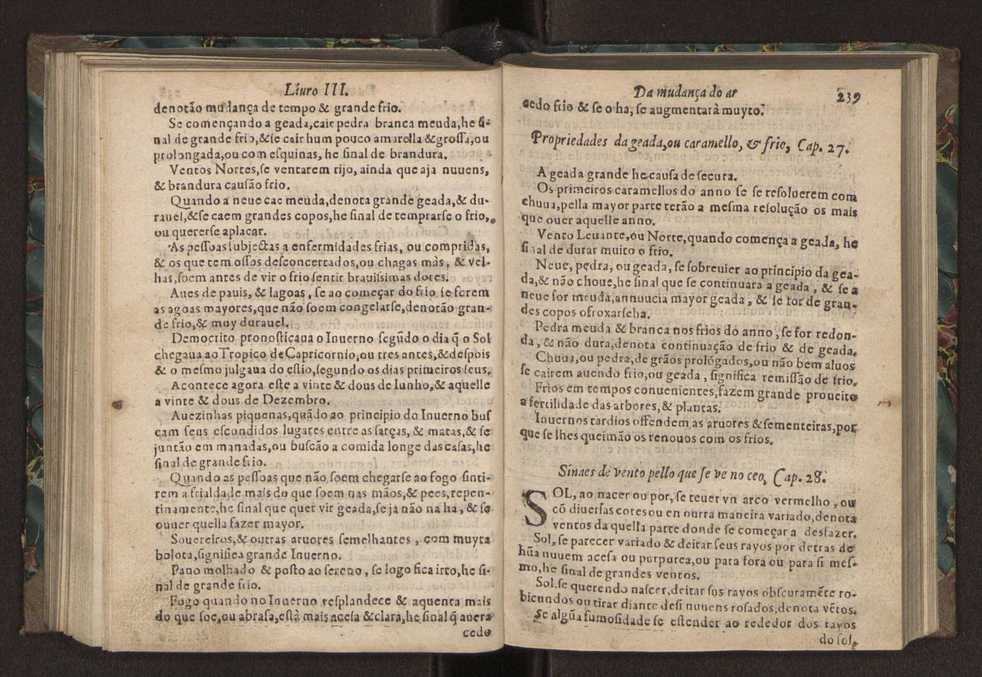 Livro III.
denotão mudança de tempo & grande frio.
Se començando a geada, cair pedra branca meuda, he si-
nal de grande frio, & se cair hum pouco amarella & grossa, ou
prolongada, ou com esquinas, he sinal de brandura.
Ventos Nortes, se ventarem rijo, ainda que aja nuuens,
& brandura causão frio.
Quando a neue cae meuda, denota grande geada, & du-
rauel, & se caem grandes copos, he sinal de temprarse o frio,
ou quererse aplacar.
As pessoas subjectas a enfermidades frias, ou compridas,
& os que tem ossos desconcertados, ou chagas màs, & vel-
has, soem antes de vir o frio sentir brauissimas dores.
Aues de pauis, & lagoas, se ao começar do frio se forem
as agoas mayores, que não soem congelarse, denotão gran-
de frio, & muy durauel.
Democrito pronosticaua o Inuerno segũdo o dia q̃ o Sol
chegaua ao Tropico de Capricornio, ou tres antes, & despois
& o mesmo julgaua do estio, segundo os dias primeiros seus.
Acontece agora este a vinte & dous de Iunho, & aquelle
a vinte & dous de Dezembro.
Auezinhas piquenas, quãdo ao principio do Inuerno bus
cam seus escondidos lugares entre as sarças, & matas, & se
juntão em manadas, ou buscão a comida longe das casas, he
sinal de grande frio.
Quando as pessoas que não soem chegarse ao fogo sinti-
rem a frialdade mais do que soem nas mãos, & pees, repen-
tinamente, he sinal que quer vir geada, se ja não na ha, & se
ouuer quella fazer mayor.
Souereiros, & outras aruores semelhantes, com muyta
bolota, significa grande Inuerno.
Pano molhado & posto ao sereno, se logo fica irto, he si-
nal de grande frio.
Fogo quando no Inuerno resplandece & aquenta mais
do que soe, ou abrasa, està mais acesa & clara, he sinal q̃ auera
cedo
Da mudança do ar 239
cedo frio & se o ha, se augmentarà muyto.
Propriedades da geada, ou caramello, & frio, Cap. 27.
A geada grande he causa de secura.
Os primeiros caramellos do anno se se resoluerem com
chuua, pella mayor parte terão a mesma resolução os mais
que ouer aquelle anno.
Vento Leuante, ou Norte, quando começa a geada, he
sinal de durar muito o frio.
Neue, pedra, ou geada, se sobreuier ao principio da gea-
da, & não choue, he sinal que se continuara a geada, & se a
neue for meuda, annuucia mayor geada, & se for de gran-
des copos afroxarseha.
Pedra meuda & branca nos frios do anno, se for redon-
da, & não dura, denota continuação de frio & de geada.
Chuua, ou pedra, de grãos prolõgados, ou não bem aluos
se cairem auendo frio, ou geada, significa remissão de frio.
Frios em tempos conuenientes, fazem grande proueito
a fertilidade das arbores, & plantas.
Inuernos tardios offendem as aruores & sementeiras, por
que se lhes queimão os renouos com os frios.
Sinaes de vento pello que se ve no ceo, Cap. 28.
SOL, ao nacer ou por, se teuer vn arco vermelho, ou
cõ diuersas cores ou en outra maneira variado, denota
ventos da quella parte donde se começar a desfazer.
Sol, se parecer variado & deitar seus rayos por detras de
hũa nuuem acesa ou purpurea, ou para fora ou para si mes-
mo, he sinal de grandes ventos.
Sol, se querendo nascer, deitar sus rayos obscuramẽte ro-
bicundos ou tirar diante de si nuuens rosados, denota vẽtos.
Se algũa fumosidade se estender ao rededor dos rayos
do sol,